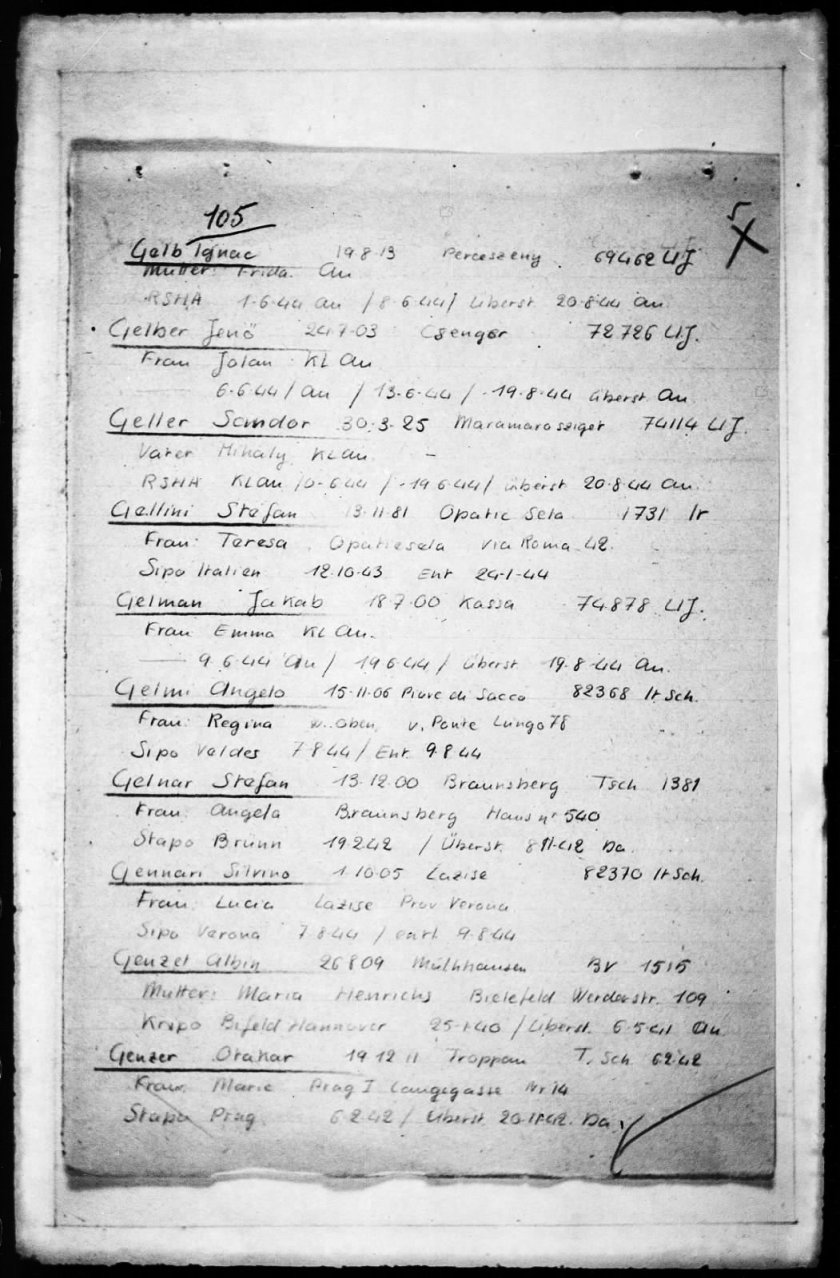 105
5
X
Gelb Ignac 19.8.13 Perceszeny 69462 UJ
Mutter: Frida. Au
RSHA 1.6.44 Au / 8.6.44 / Überst 20.8.44 Au.
Gelber Jenö 24.7.03 Csenger 72726 UJ.
Frau Jolan KL Au
6.6.44 / Au / 13.6.44 / -19.8.44 überst. Au
Geller Sandor 30.3.25 Maramarossziget 74114 UJ.
Vater Mihaly KL Au. -
RSHA KL Au 10.6.44 / -19.6.44 / überst 20.8.44 Au.
Gellini Stefan 13.11.81 Opatie Sela 1731 It
Frau: Teresa Opatiesela Via Roma 42.
Sipo Italien 12.10.43 Ent 24.1.44
Gelman Jakab 18.7.00 Kassa 74878 UJ.
Frau Emma KL Au.
— 9.6.44 Au / 19.6.44 / überst 19.8.44 Au.
Gelmi Angelo 15.11.06 Piove di Sacco 82368 It Sch.
Frau: Regina w. oben, v. Ponte Lungo 78
Sipo Valdes 7.8.44 / Ent. 9.8.44
Gelnar Stefan 13.12.00 Braunsberg Tsch 1381
Frau Angela Braunsberg Haus nr 540
Stapo Brünn 19.2.42 / Überst. 8.11.42 Da.
Gennari Silvino 1.10.05 Lazise 82370 It Sch.
Frau Lucia Lazise Prov Verona
Sipo Verona 7.8.44 / entl. 9.8.44
Genzel Albin 26.8.09 Mülhhausen BV 1515
Mutter: Maria Henrichs Bielefeld Werderstr. 109
Kripo Bifeld Hannover 25.1.40 / Überst. 6.5.41 Au
Genzer Otakar 19.12.11 Troppau T. Sch 6242
Frau. Marie Prag I Langegasse Nr 14
Stapo Prag 6.2.42 / Überst. 20.11.42. Da.